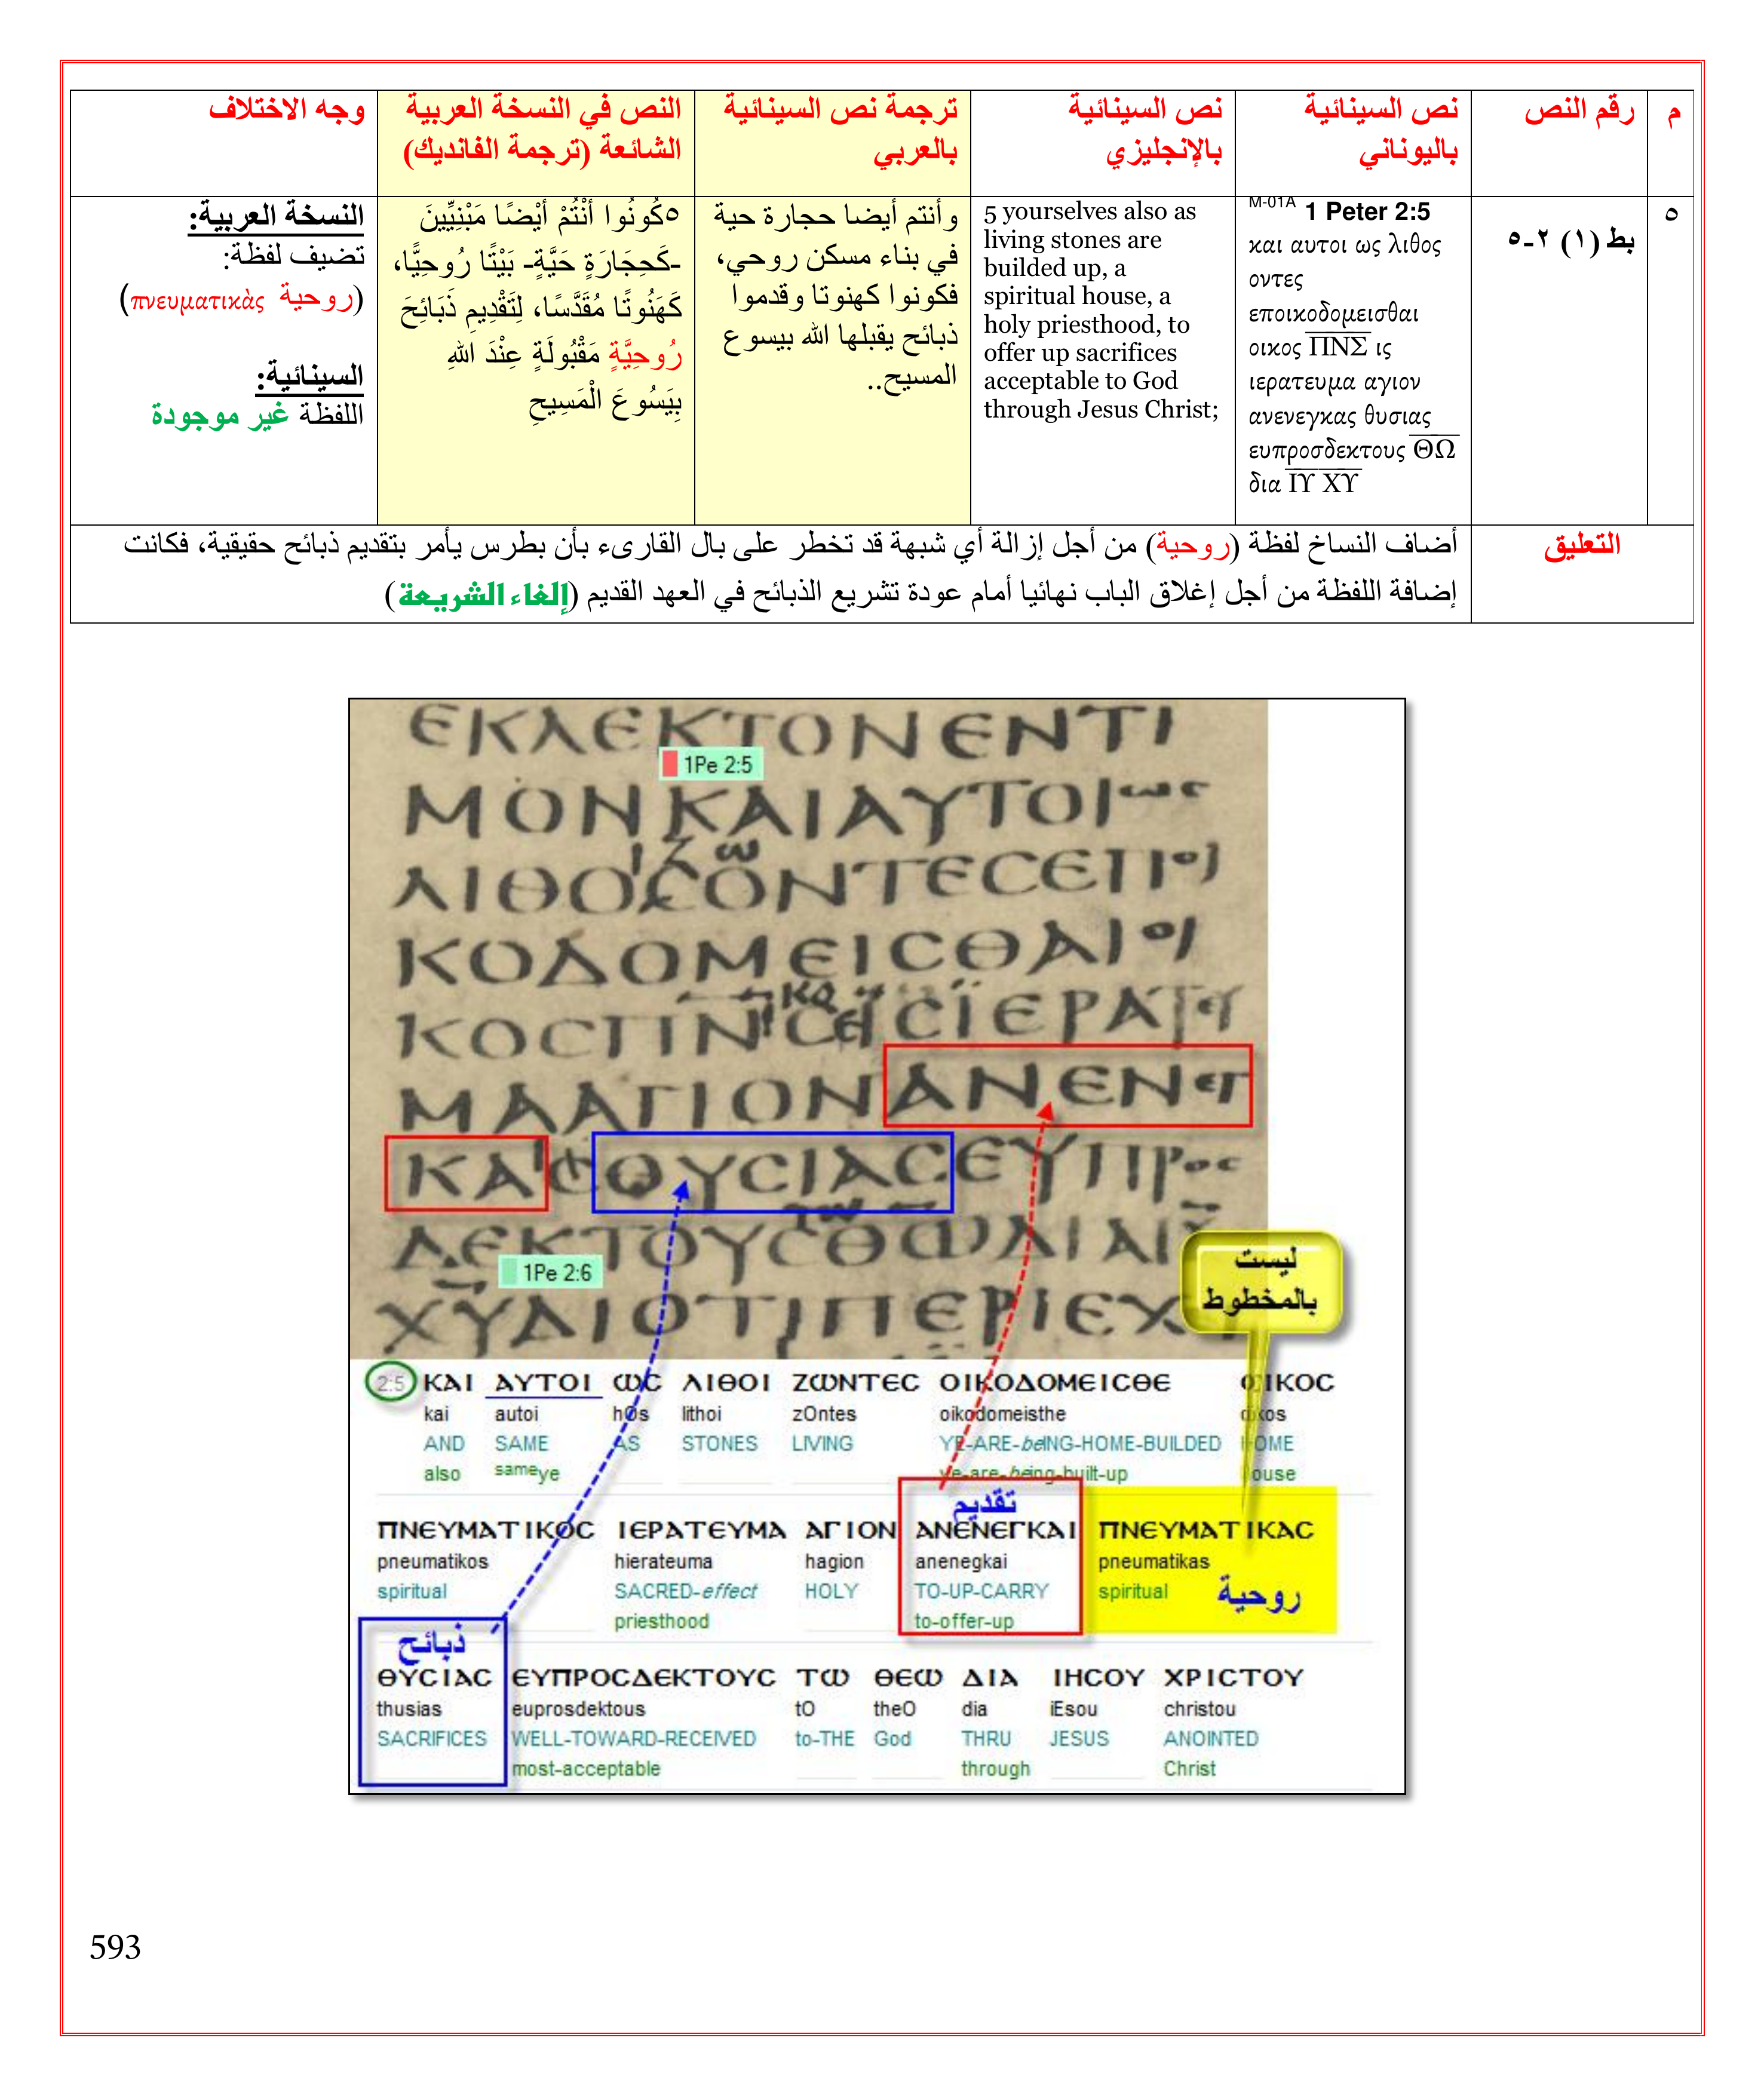 م
رقم النص
نص السينائية
باليوناني
نص السينائية
بالإنجليزي
ترجمة نص السينائية
بالعربي
النص في النسخة العربية
الشائعة (ترجمة الفانديك)
وجه الاختلاف
٥
بط (١) ٢-٥
M-01A 1 Peter 2:5
και αυτοι ως λιθος
οντες
εποικοδομεισθαι
οικος Π̅Ν̅Σ̅ ις
ιερατευμα αγιον
ανενεγκας θυσιας
ευπροσδεκτους Θ̅Ω̅
δια Ι̅Υ̅ Χ̅Υ̅
5 yourselves also as
living stones are
builded up, a
spiritual house, a
holy priesthood, to
offer up sacrifices
acceptable to God
through Jesus Christ;
وأنتم أيضا حجارة حية
في بناء مسكن روحي،
فكونوا كهنوتا وقدموا
ذبائح يقبلها الله بيسوع
المسيح..
٥كُونُوا أَنْتُمْ أَيْضًا مَبْنِيِّينَ
-كَحِجَارَةٍ حَيَّةٍ- بَيْتًا رُوحِيًّا،
كَهَنُوتًا مُقَدَّسًا، لِتَقْدِيمِ ذَبَائِحَ
رُوحِيَّةٍ مَقْبُولَةٍ عِنْدَ اللهِ
بِيَسُوعَ الْمَسِيحِ
النسخة العربية:
تضيف لفظة:
(روحية πνευματικὰς)
السينائية:
اللفظة غير موجودة
التعليق
أضاف النساخ لفظة (روحية) من أجل إزالة أي شبهة قد تخطر على بال القارىء بأن بطرس يأمر بتقديم ذبائح حقيقية، فكانت
إضافة اللفظة من أجل إغلاق الباب نهائيا أمام عودة تشريع الذبائح في العهد القديم (إلغاء الشريعة)
ΕΚΛΕΚΤΟΝΕΝΤΙ
1Pe 2:5
ΜΟΝΚΑΙΑΥΤΟΙωϲ
ΛΙΘΟϹΟΝΤΕϹΕΠΟΙ
ΚΟΔΟΜΕΙϹΘΑΙΟΙ
ΚΟϹΠΝϹΕΙϹΪΕΡΑΤΕΥ
ΜΑΑΓΙΟΝΑΝΕΝΕΓ
ΚΑϹΘΥϹΙΑϹΕΥΠΡΟϹ
ΔΕΚΤΟΥϹΘΩΔΙΑΙΥ
1Pe 2:6
ΧΥΔΙΟΤΙΠΕΡΙΕΧ
ليست
بالمخطوط
2:5 ΚΑΙ ΑΥΤΟΙ ΩϹ ΛΙΘΟΙ ΖΩΝΤΕϹ ΟΙΚΟΔΟΜΕΙϹΘΕ ΟΙΚΟϹ
kai autoi hOs lithoi zOntes oikodomeisthe oikos
AND SAME AS STONES LIVING YE-ARE-beING-HOME-BUILDED HOME
also sameye ye-are-being-built-up house
تقديم
ΠΝΕΥΜΑΤΙΚΟϹ ΙΕΡΑΤΕΥΜΑ ΑΓΙΟΝ ΑΝΕΝΕΓΚΑΙ ΠΝΕΥΜΑΤΙΚΑϹ
pneumatikos hierateuma hagion anenegkai pneumatikas
spiritual SACRED-effect HOLY TO-UP-CARRY spiritual روحية
priesthood to-offer-up
ذبائح
ΘΥϹΙΑϹ ΕΥΠΡΟϹΔΕΚΤΟΥϹ ΤΩ ΘΕΩ ΔΙΑ ΙΗϹΟΥ ΧΡΙϹΤΟΥ
thusias euprosdektous tO theO dia iEsou christou
SACRIFICES WELL-TOWARD-RECEIVED to-THE God THRU JESUS ANOINTED
most-acceptable through Christ
593